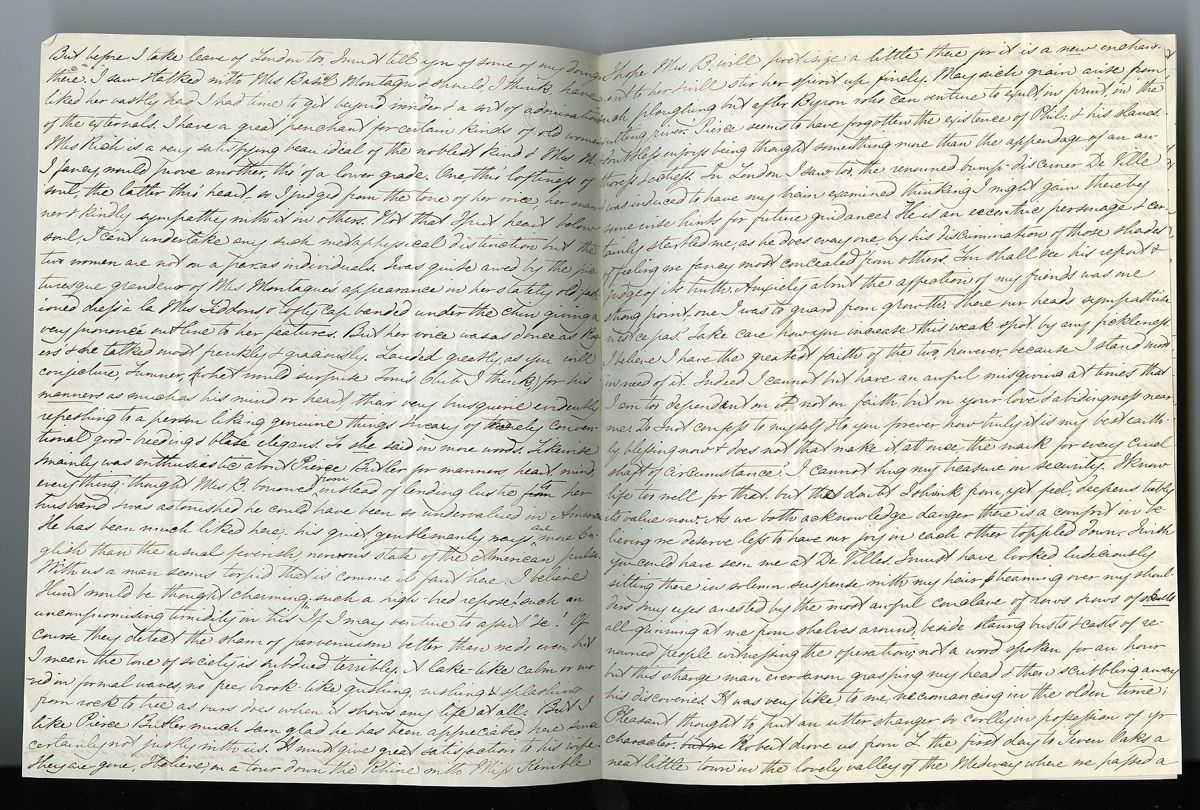 But before I take leave of London too I must tell you of some of my doings
there. I saw & talked with Mrs Basil Montagu & should I think have
liked her vastly had I had time to get beyond wonder & a sort of admiration
of the externals. I have a great penchant for certain kinds of old women
Mrs Rich is a very satisfying beau ideal of the noblest kind & Mrs M.
I fancy, would prove another, tho' of a lower grade. One, thro loftiness of
soul, the latter thro' heart, so I judged from the tone of her voice her man-
ner & kindly sympathy with it in others. Not that I put heart below
soul, I cant undertake any such metaphysical distinction but the
two women are not on a par as individuals. I was quite awed by the pic-
turesque grandeur of Mrs Montagues appearance in her stately old fash
ioned dress a la Mrs Siddons & lofty cap banded under the chin giving a
very prononcé outline to her features. But her voice was as d once as
ers & she talked most frankly & graciously. Lauded greatly, as you will
conjecture, Sumner, (what would surprise Tom's Club I think) for his
manners as much as his mind or heart their very brusquerie evidently
refreshing to a person liking genuine things & weary of merely conven-
tional good-breeding & blasé elegans. So she said in more words. Likewise
mainly was enthusiastic about Pierce Butler for manners heart, mind
everything. thought Mrs B borrowed from instead of lending lustre to her
husband & was astonished he could have been so undervalued in America
He has been much liked here, his quiet gentlemanly ways, are more En-
glish than the usual feverish nervous state of the American pulse
With us a man seems torpid that is comme il faut here. I believe
Hunt would be thought charming, such a high-bred repose! such an
uncompromising timidity in his "If I may venture to assert so"! Of
course they detect the sham of parvenuism better than we do even, but
I mean the tone of society is subdued terribly, & lake-like calm or mo
ved in formal waves, no free brook-like gushing, rushing & splashing
from rock to tree as ours does when it shows any life at all. But I
like Pierce Butler much & am glad he has been appreciated here since
certainly not justly with us. It must give great satisfaction to his wife.
They are gone, I believe, on a tour down the Rhine with Miss Kemble
I hope Mrs B. will poetisize a little there for it is a new enchant-
ment to her & will stir her spirit up finely. May rich grain arise from
such ploughing but after Byron who can venture to in print, on the
river. Pierce seems to have forgotten the existence of Phil: & his slaves.
doubtless enjoys being thought something more than the appendage of an au-
thoress & actress. In London I saw too the renowned bump-discerner De Ville
& was induced to have my brain examined thinking I might gain thereby
some wise hints for future guidance! He is an eccentric personage & cer-
tainly startled me, as he does everyone, by his discrimination of those shades
of feeling we fancy most concealed from others. You shall see his report &
judge of its truth. Anxiety about the affection of my friends was one
strong point, one I was to guard from growth. There our heads sympathise
n'est ce pas? Take care how you increase this weak spot by any fickleness.
I believe I have the greatest faith of the two, however because I stand most
in need of it. Indeed I cannot but have an awful misgiving at times that
I am too dependant on it not on faith but on your love's abidingness near
me. Do I not confess to myself & to you forever how truly it is my best earth
ly blessing now & does not that make it, at once, the mark for every cruel
shaft of circumstance? I cannot hug my treasure in security. I know
life too well for that. but the doubt I shrink from, yet feel, deepens trebly
its value now. As we both acknowledge danger there is a comfort in be
lieving we deserve less to have our joy in each other toppled down. I wish
you could have seen me at De Villes. I must have looked ludicrously
sitting there in solemn suspense with my hair streaming over my shoul-
ders my eyes arrested by the most awful conclave of rows rows of skulls
all grinning at me from shelves around, beside staring busts & casts of re-
nowned people witnessing the operation, not a word spoken for an hour
but this strange man ever & anon grasping my head & then scribbling away
his discoveries. It was very like, to me, necromancing in the olden time;
Pleasant thought to put an utter stranger so coolly in possession of yr
character! Robert drove us from L. the first day to Seven Oaks a
neat little town in the lovely valley of the Medway where we passed a